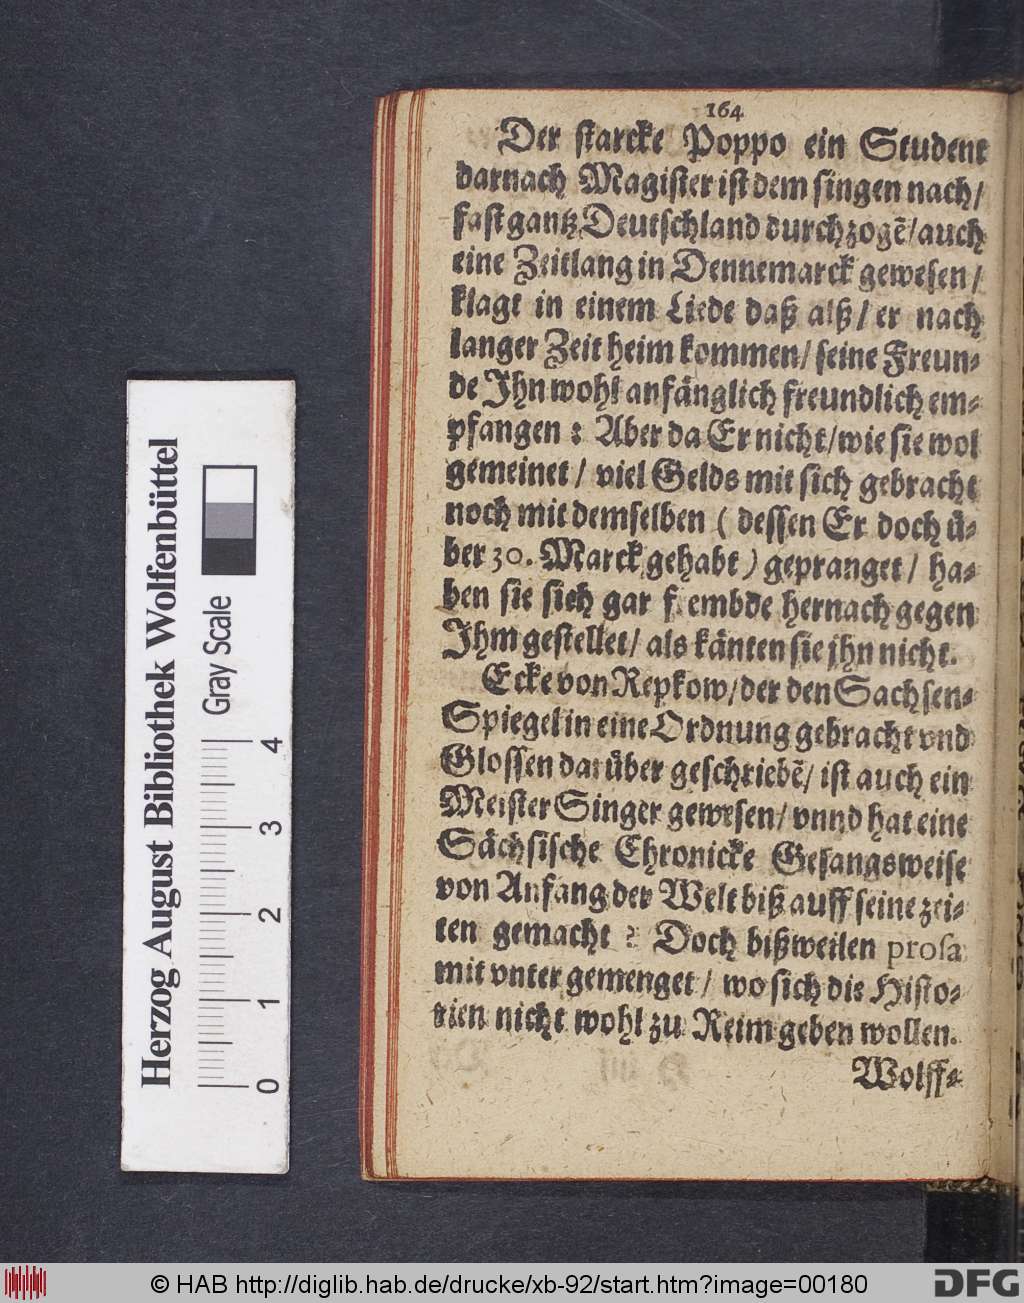 164
Der starcke Poppo ein Student
darnach Magister ist dem singen nach/
fast gantz Deutschland durchzogẽ/auch
eine Zeitlang in Dennemarck gewesen/
klagt in einem Liede daß alß/ er nach
langer Zeit heim kommen/ seine Freun-
de Ihn wohl anfänglich freundlich em-
pfangen : Aber da Er nicht/wie sie wol
gemeinet/ viel Gelds mit sich gebracht
noch mit demselben ( dessen Er doch ü-
ber 30. Marck gehabt ) gepranget/ ha-
ben sie sich gar frembde hernach gegen
Ihm gestellet/ als känten sie jhn nicht.
Ecke von Repkow/der den Sachsen-
Spiegel in eine Ordnung gebracht vnd
Glossen darüber geschriebẽ/ ist auch ein
Meister Singer gewesen/ vnnd hat eine
Sächsische Chronicke Gesangsweise
von Anfang der Welt biß auff seine zei-
ten gemacht : Doch bißweilen prosa
mit vnter gemenget/ wo sich die Histo-
rien nicht wohl zu Reim geben wollen.
Wolff-
Herzog August Bibliothek Wolfenbüttel
Gray Scale
0 1 2 3 4
© HAB http://diglib.hab.de/drucke/xb-92/start.htm?image=00180
DFG